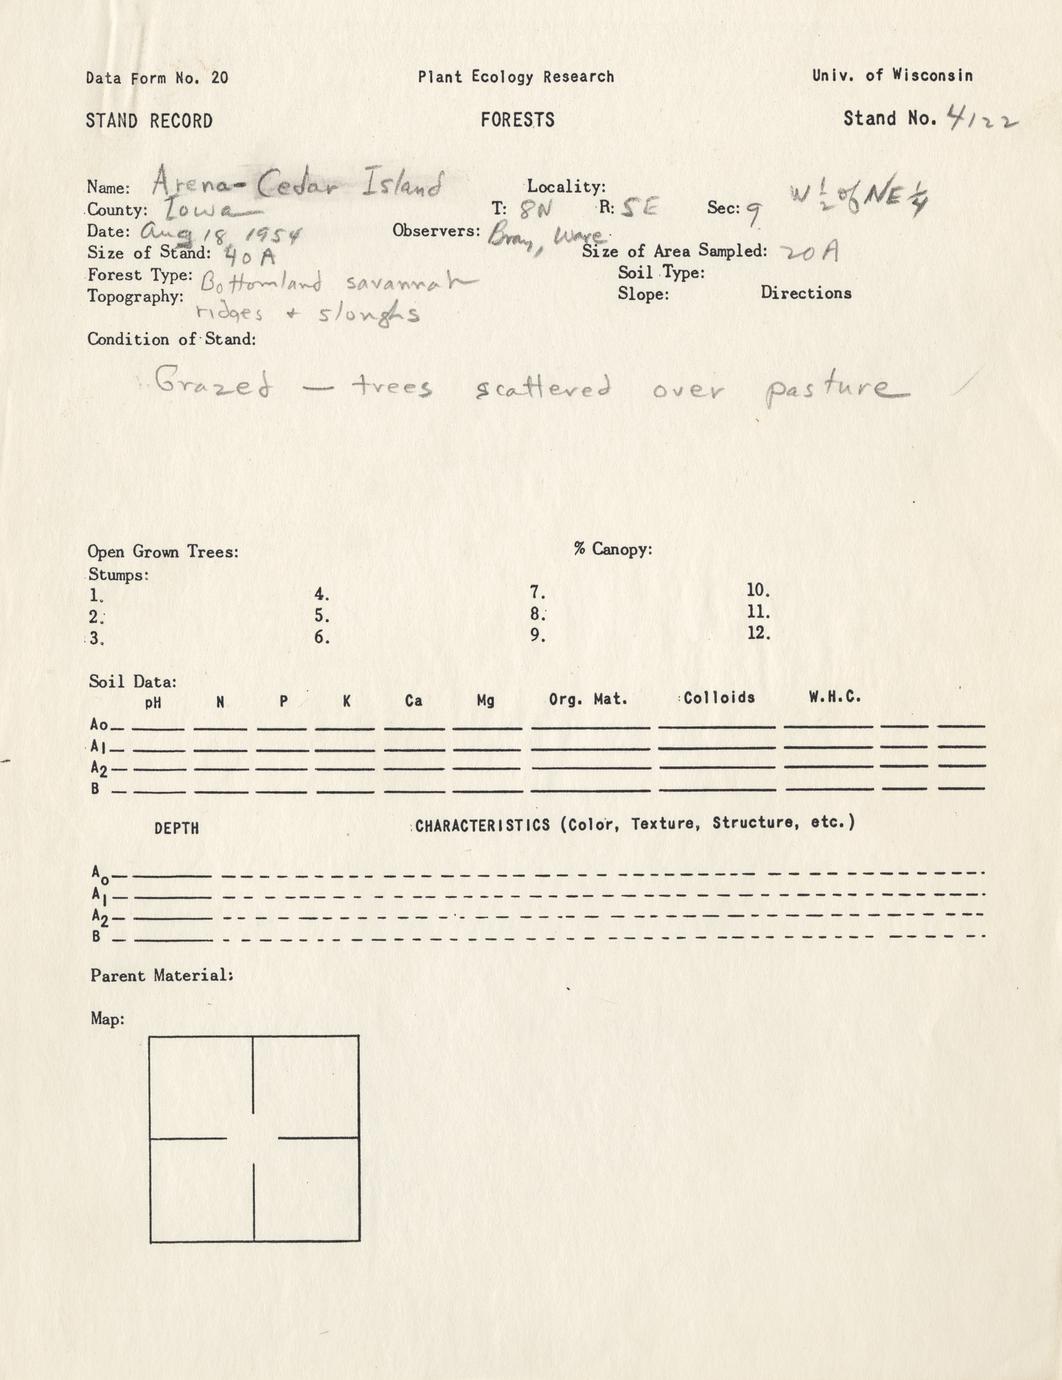 Data Form No. 20 Plant Ecology Research Univ. of Wisconsin
STAND RECORD FORESTS Stand No. 4122
Name: Arena-Cedar Island Locality: W ½ of NE ¼
County: Iowa T: 8N R: 5E Sec: 9
Date: Aug 18, 1954 Observers: Bray, Ware
Size of Stand: 40 A Size of Area Sampled: 20 A
Forest Type: Bottomland savannah Soil Type:
Topography: ridges + sloughs Slope: Directions
Condition of Stand:
Grazed — trees scattered over pasture
Open Grown Trees: % Canopy:
Stumps:
1. 4. 7. 10.
2. 5. 8. 11.
3. 6. 9. 12.
Soil Data:
pH N P K Ca Mg Org. Mat. Colloids W.H.C.
Ao
A1
A2
B
DEPTH CHARACTERISTICS (Color, Texture, Structure, etc.)
Ao
A1
A2
B
Parent Material:
Map: